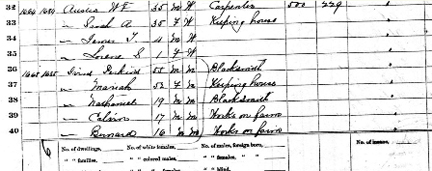 32 Austin W E 35 M W Carpenter 500 229
33 — Sarah A 35 F W Keeping house
34 — James T. 4 M W
35 — S 1 F W
36 55 M M Blacksmith
37 — Mariah 52 F M Keeping house
38 — Nathaniel 19 M M Blacksmith
39 — Calvin 17 M M Works on farm
40 — Bernard 16 M M Works on farm
No. of dwellings, No. of white females, No. of males, foreign born, No. of insane,
" " families, " " colored males, " " females, " "
" " blind,